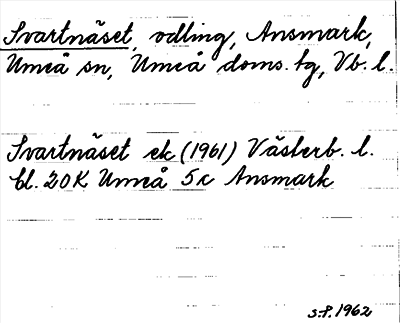 Svartnäset, odling, Ansmark,
Umeå sn, Umeå doms. tg, Vb. l.
Svartnäset ek (1961) Västerb. l.
bl. 20K Umeå 5c Ansmark
S.P. 1962